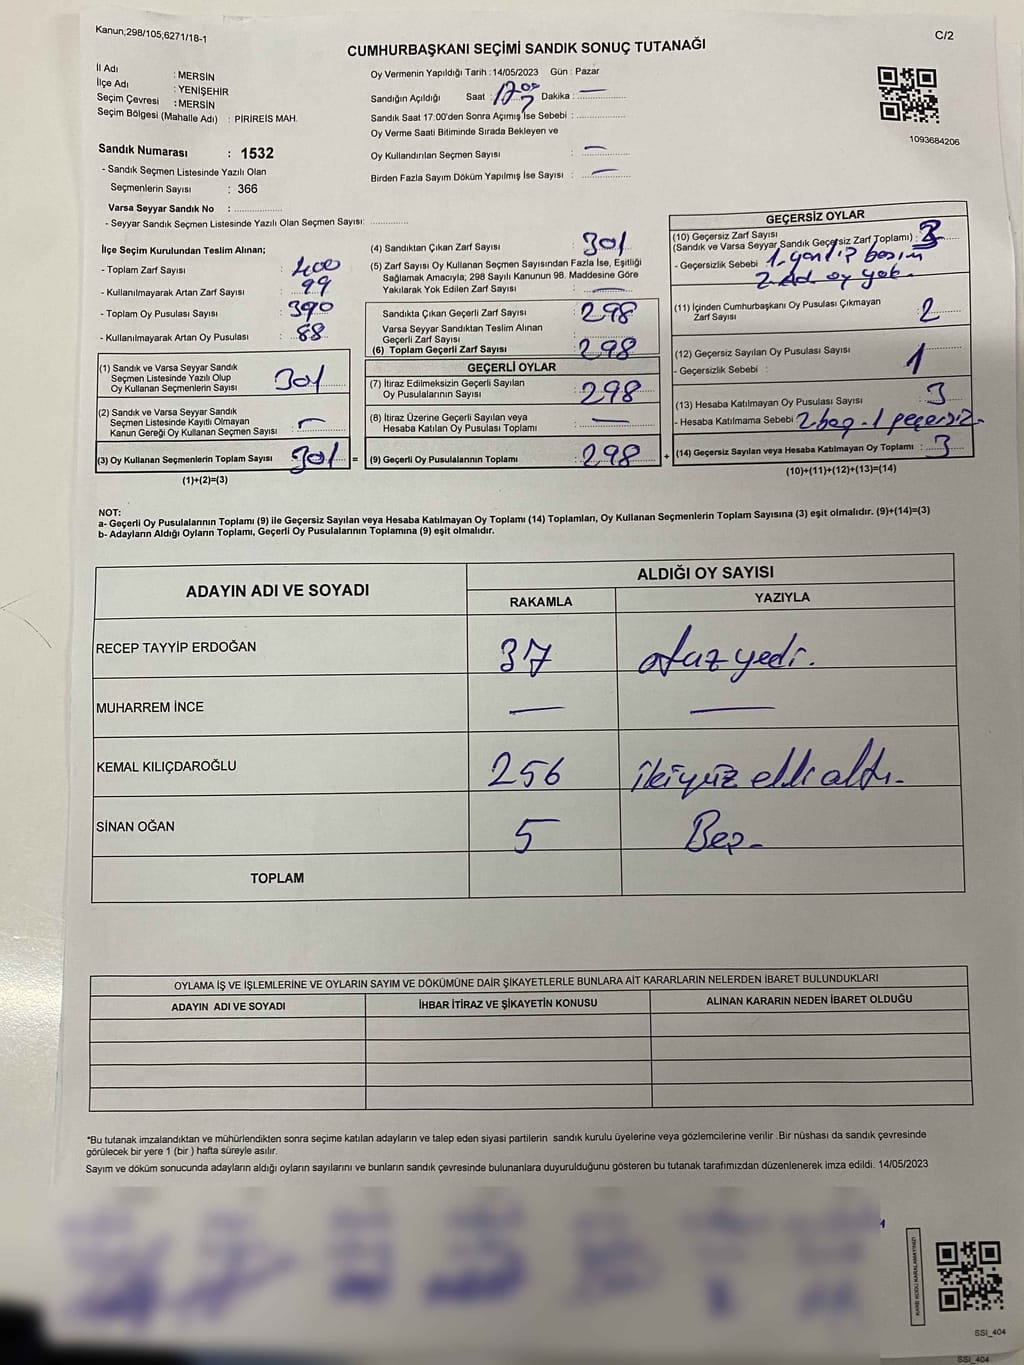 Kanun;298/105,6271/18-1
C/2
CUMHURBAŞKANI SEÇİMİ SANDIK SONUÇ TUTANAĞI
İl Adı : MERSİN
İlçe Adı : YENİŞEHİR
Seçim Çevresi : MERSİN
Seçim Bölgesi (Mahalle Adı) : PİRİREİS MAH.
Sandık Numarası : 1532
- Sandık Seçmen Listesinde Yazılı Olan
Seçmenlerin Sayısı : 366
Varsa Seyyar Sandık No : ..................
- Seyyar Sandık Seçmen Listesinde Yazılı Olan Seçmen Sayısı: ..............
Oy Vermenin Yapıldığı Tarih :14/05/2023 Gün : Pazar
Sandığın Açıldığı Saat : 17:00 Dakika : —
Sandık Saat 17:00'den Sonra Açımış İse Sebebi : ..................
Oy Verme Saati Bitiminde Sırada Bekleyen ve
Oy Kullandırılan Seçmen Sayısı : —
Birden Fazla Sayım Döküm Yapılmış İse Sayısı : —
1093684206
İlçe Seçim Kurulundan Teslim Alınan;
- Toplam Zarf Sayısı : 400
- Kullanılmayarak Artan Zarf Sayısı : 99
- Toplam Oy Pusulası Sayısı : 390
- Kullanılmayarak Artan Oy Pusulası : 88
(1) Sandık ve Varsa Seyyar Sandık
Seçmen Listesinde Yazılı Olup
Oy Kullanan Seçmenlerin Sayısı : 301
(2) Sandık ve Varsa Seyyar Sandık
Seçmen Listesinde Kayıtlı Olmayan
Kanun Gereği Oy Kullanan Seçmen Sayısı : —
(3) Oy Kullanan Seçmenlerin Toplam Sayısı : 301 =
(1)+(2)=(3)
(4) Sandıktan Çıkan Zarf Sayısı : 301
(5) Zarf Sayısı Oy Kullanan Seçmen Sayısından Fazla İse, Eşitliği
Sağlamak Amacıyla; 298 Sayılı Kanunun 98. Maddesine Göre
Yakılarak Yok Edilen Zarf Sayısı : —
Sandıkta Çıkan Geçerli Zarf Sayısı : 298
Varsa Seyyar Sandıktan Teslim Alınan
Geçerli Zarf Sayısı
(6) Toplam Geçerli Zarf Sayısı : 298
GEÇERLİ OYLAR
(7) İtiraz Edilmeksizin Geçerli Sayılan
Oy Pusulalarının Sayısı : 298
(8) İtiraz Üzerine Geçerli Sayılan veya
Hesaba Katılan Oy Pusulaları Toplamı : —
(9) Geçerli Oy Pusulalarının Toplamı : 298 +
GEÇERSİZ OYLAR
(10) Geçersiz Zarf Sayısı
(Sandık ve Varsa Seyyar Sandık Geçersiz Zarf Toplamı) :
- Geçersizlik Sebebi : 1.yanlış basım
2. Ad oy yok.
(11) İçinden Cumhurbaşkanı Oy Pusulası Çıkmayan
Zarf Sayısı : 2
(12) Geçersiz Sayılan Oy Pusulası Sayısı : 1
- Geçersizlik Sebebi :
(13) Hesaba Katılmayan Oy Pusulası Sayısı : 3
- Hesaba Katılmama Sebebi : 2 boş - 1 geçersiz.
(14) Geçersiz Sayılan veya Hesaba Katılmayan Oy Toplamı : 3
(10)+(11)+(12)+(13)=(14)
NOT:
a- Geçerli Oy Pusulalarının Toplamı (9) ile Geçersiz Sayılan veya Hesaba Katılmayan Oy Toplamı (14) Toplamları, Oy Kullanan Seçmenlerin Toplam Sayısına (3) eşit olmalıdır. (9)+(14)=(3)
b- Adayların Aldığı Oyların Toplamı, Geçerli Oy Pusulalarının Toplamına (9) eşit olmalıdır.
ADAYIN ADI VE SOYADI
ALDIĞI OY SAYISI
RAKAMLA YAZIYLA
RECEP TAYYİP ERDOĞAN 37 otuz yedi.
MUHARREM İNCE — —
KEMAL KILIÇDAROĞLU 256 ikiyüz elli altı.
SİNAN OĞAN 5 Beş
TOPLAM
OYLAMA İŞ VE İŞLEMLERİNE VE OYLARIN SAYIM VE DÖKÜMÜNE DAİR ŞİKAYETLERLE BUNLARA AİT KARARLARIN NELERDEN İBARET BULUNDUKLARI
ADAYIN ADI VE SOYADI İHBAR İTİRAZ VE ŞİKAYETİN KONUSU ALINAN KARARIN NEDEN İBARET OLDUĞU
*Bu tutanak imzalandıktan ve mühürlendikten sonra seçime katılan adayların ve talep eden siyasi partilerin sandık kurulu üyelerine veya gözlemcilerine verilir .Bir nüshası da sandık çevresinde
görülecek bir yere 1 (bir ) hafta süreyle asılır.
Sayım ve döküm sonucunda adayların aldığı oyların sayılarını ve bunların sandık çevresinde bulunanlara duyurulduğunu gösteren bu tutanak tarafımızdan düzenlenerek imza edildi. 14/05/2023
KARE KODU KARALAMAYINIZ!
SSI_404
SSI_404